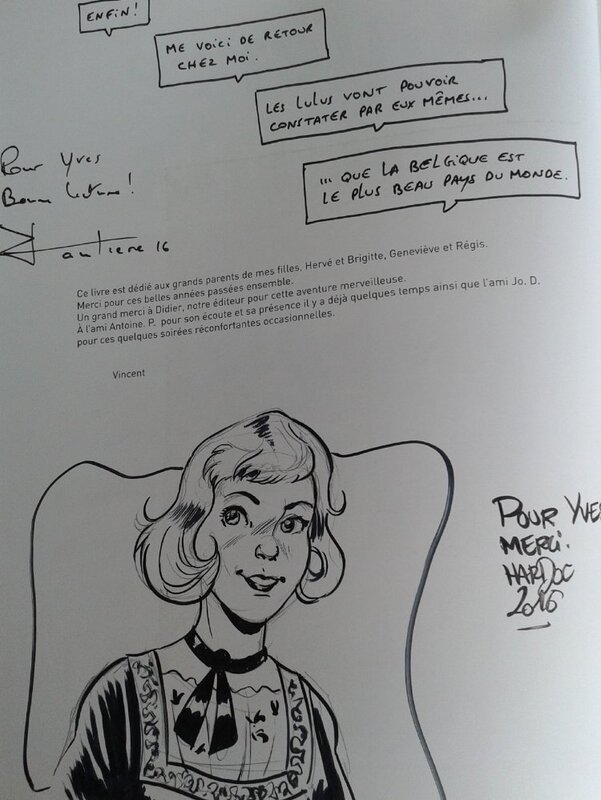 ENFIN!
ME VOICI DE RETOUR
CHEZ MOI.
LES LULUS VONT POUVOIR
CONSTATER PAR EUX MÊMES...
... QUE LA BELGIQUE EST
LE PLUS BEAU PAYS DU MONDE.
Pour Yves
Bonne lecture!
Hautiere 16
Ce livre est dédié aux grands parents de mes filles. Hervé et Brigitte, Geneviève et Régis.
Merci pour ces belles années passées ensemble.
Un grand merci à Didier, notre éditeur pour cette aventure merveilleuse.
À l'ami Antoine. P. pour son écoute et sa présence il y a déjà quelques temps ainsi que l'ami Jo. D.
pour ces quelques soirées réconfortantes occasionnelles.
Vincent
POUR YVES
MERCI.
HARDOC
2016